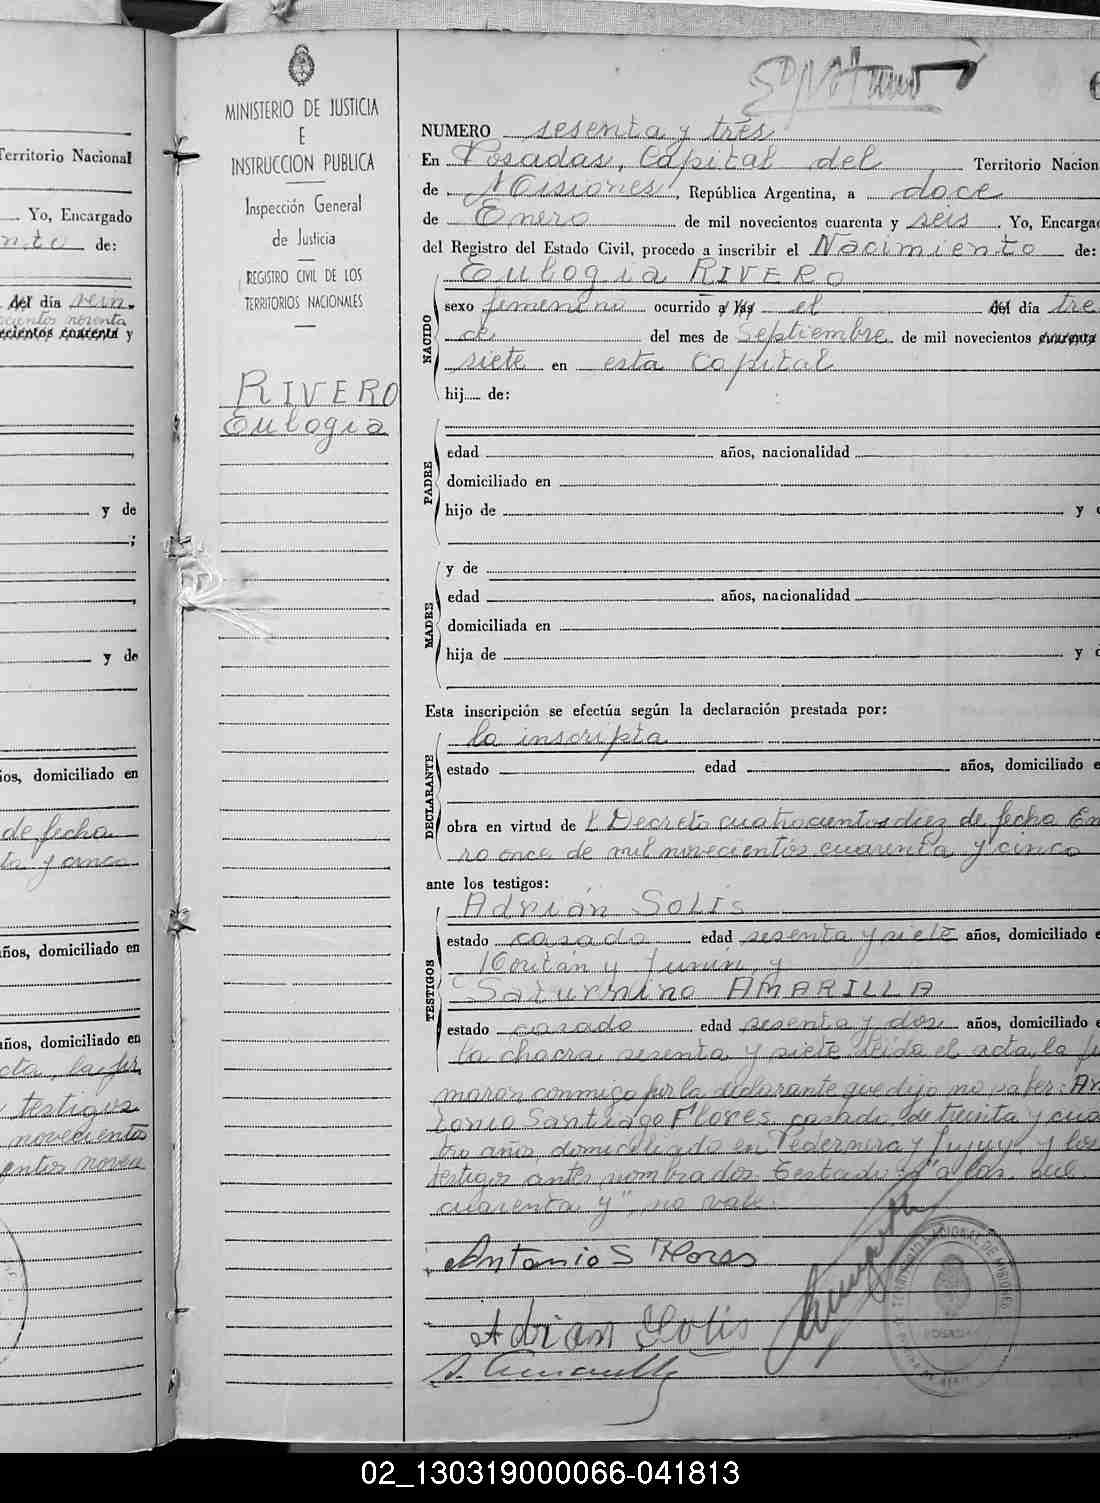 Territorio Nacional
Yo, Encargado
de:
del día vein
cientos noventa
ecientos cuarenta y
y de
y de
ios, domiciliado en
de fecha
ta y cinco
años, domiciliado en
años, domiciliado en
testigos
novecientos
MINISTERIO DE JUSTICIA
E
INSTRUCCION PUBLICA
Inspección General
de Justicia
REGISTRO CIVIL DE LOS
TERRITORIOS NACIONALES
RIVERO
Eulogia
6
NUMERO sesenta y tres
En Posadas, Capital del Territorio Nacion
de Misiones, República Argentina, a doce
de Enero de mil novecientos cuarenta y seis. Yo, Encarga
del Registro del Estado Civil, procedo a inscribir el Nacimiento de:
Eulogia RIVERO
NACIDO
sexo femenino ocurrido a las el del día tre
ce del mes de Septiembre de mil novecientos cuarenta
siete en esta Capital
hij de:
PADRE
edad años, nacionalidad
domiciliado en
hijo de y
MADRE
y de
edad años, nacionalidad
domiciliada en
hija de y
Esta inscripción se efectúa según la declaración prestada por:
DECLARANTE
la inscripta
estado edad años, domiciliado e
obra en virtud del Decreto cuatrocientos diez de fecha En
ro once de mil novecientos cuarenta y cinco
ante los testigos:
TESTIGOS
Adrián Solis
estado casado edad sesenta y siete años, domiciliado e
y Junin y
Saturnino AMARILLA
estado casado edad sesenta y dos años, domiciliado e
la chacra sesenta y siete. Leida el acta, la fi
maron conmigo por la declarante que dijo no saber: An
tonio Santiago Flores, casado, de treinta y cua
tro años, domiciliado en Pedernera y Jujuy y los
testigos antes nombrados. Testado: "a las. del
cuarenta y", no vale.
Antonio S Flores
Adrian Solis
TERRITORIO NACIONAL DE MISIONES
POSADAS
02_130319000066-041813